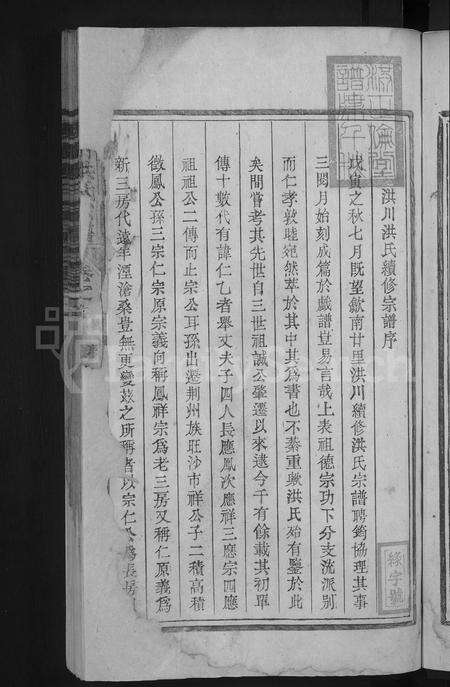 洪川洪氏續修宗譜序
戊寅之秋七月既望歙南廿里洪川續修洪氏宗譜聘筠協理其事
三閱月始刻成篇於戲譜豈易言哉上表祖德宗功下分支流派別
而仁孝敦睦宛然萃於其中其為書也不綦重歟洪氏始有鑒於此
矣間嘗考其先世自三世祖誠公肇遷以來迄今千有餘載其初單
傳十數代有諱仁乙者舉丈夫子四人長應鳳次應祥三應宗四應
祖祖公二傳而止宗公耳孫出遷荆州族旺沙市祥公子二積高積
徵鳳公孫三宗仁宗原宗義向稱鳳祥宗為老三房又稱仁原義為
新三房代遠年湮滄桑豈無更變茲之所稱者以宗仁公為長房
敦正倫堂
譜律
綠字號